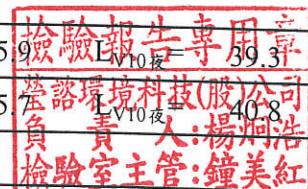 檢驗報告專用章
5.9 L_V10夜= 39.3
瑩諮環境科技(股)公司
5.7 L_V10夜= 40.8
負責人:楊炯浩
檢驗室主管:鐘美紅